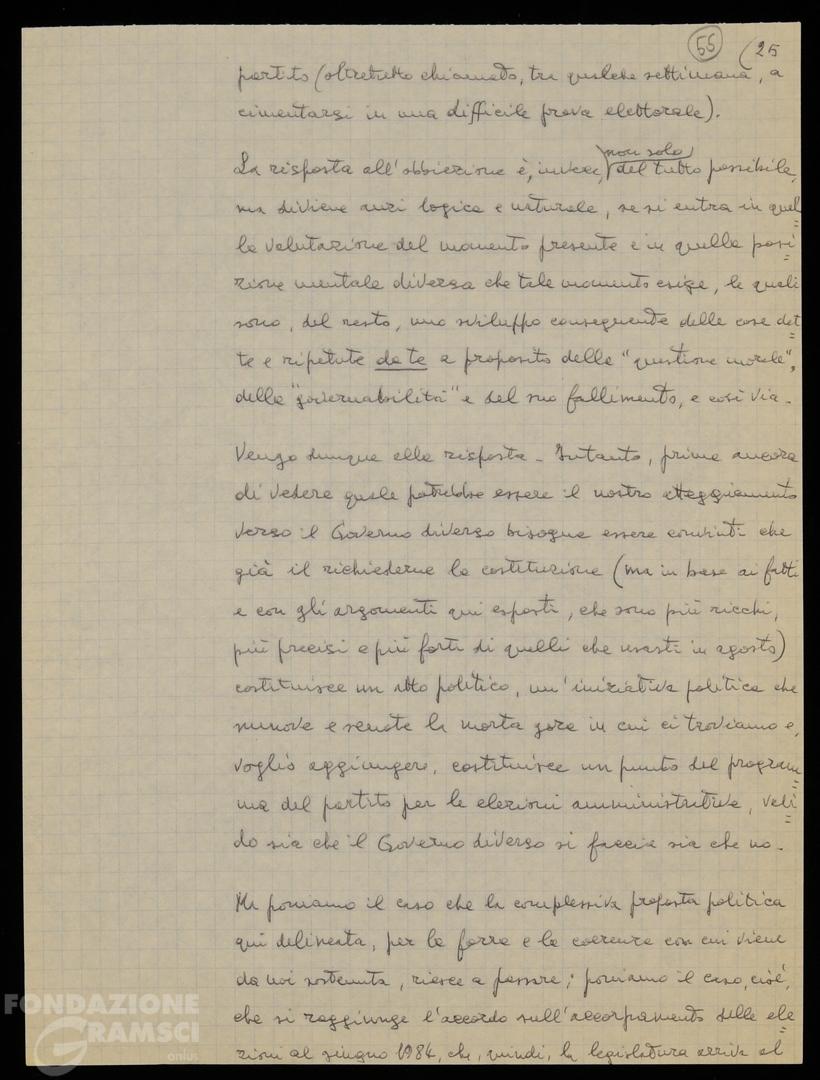 55 (25
partito (oltretutto chiamato, tra qualche settimana, a
cimentarsi in una difficile prova elettorale).
La risposta all'obbiezione è, invece, non solo del tutto possibile,
ma diviene anzi logica e naturale, se si entra in quel=
la valutazione del momento presente e in quella posi=
zione mentale diversa che tale momento esige, le quali
sono, del resto, uno sviluppo conseguente delle cose det=
te e ripetute da te a proposito della "questione morale",
della "governabilità" e del suo fallimento, e così via.
Vengo dunque alla risposta. Intanto, prima ancora
di vedere quale potrebbe essere il nostro atteggiamento
verso il Governo diverso bisogna essere convinti che
già il richiederne la costituzione (ma in base ai fatti
e con gli argomenti qui esposti, che sono più ricchi,
più precisi e più forti di quelli che usasti in agosto)
costituisce un atto politico, un'iniziativa politica che
smuove e scuote la morta gora in cui ci troviamo e,
voglio aggiungere, costituisce un punto del program=
ma del partito per le elezioni amministrative, vali=
do sia che il Governo diverso si faccia sia che no.
Ma poniamo il caso che la complessiva proposta politica
qui delineata, per la forza e la coerenza con cui viene
da noi sostenuta, riesce a passare; poniamo il caso, cioè,
che si raggiunge l'accordo sull'accorpamento delle ele=
zioni al giugno 1984, che, quindi, la legislatura arriva al
FONDAZIONE
GRAMSCI
onlus